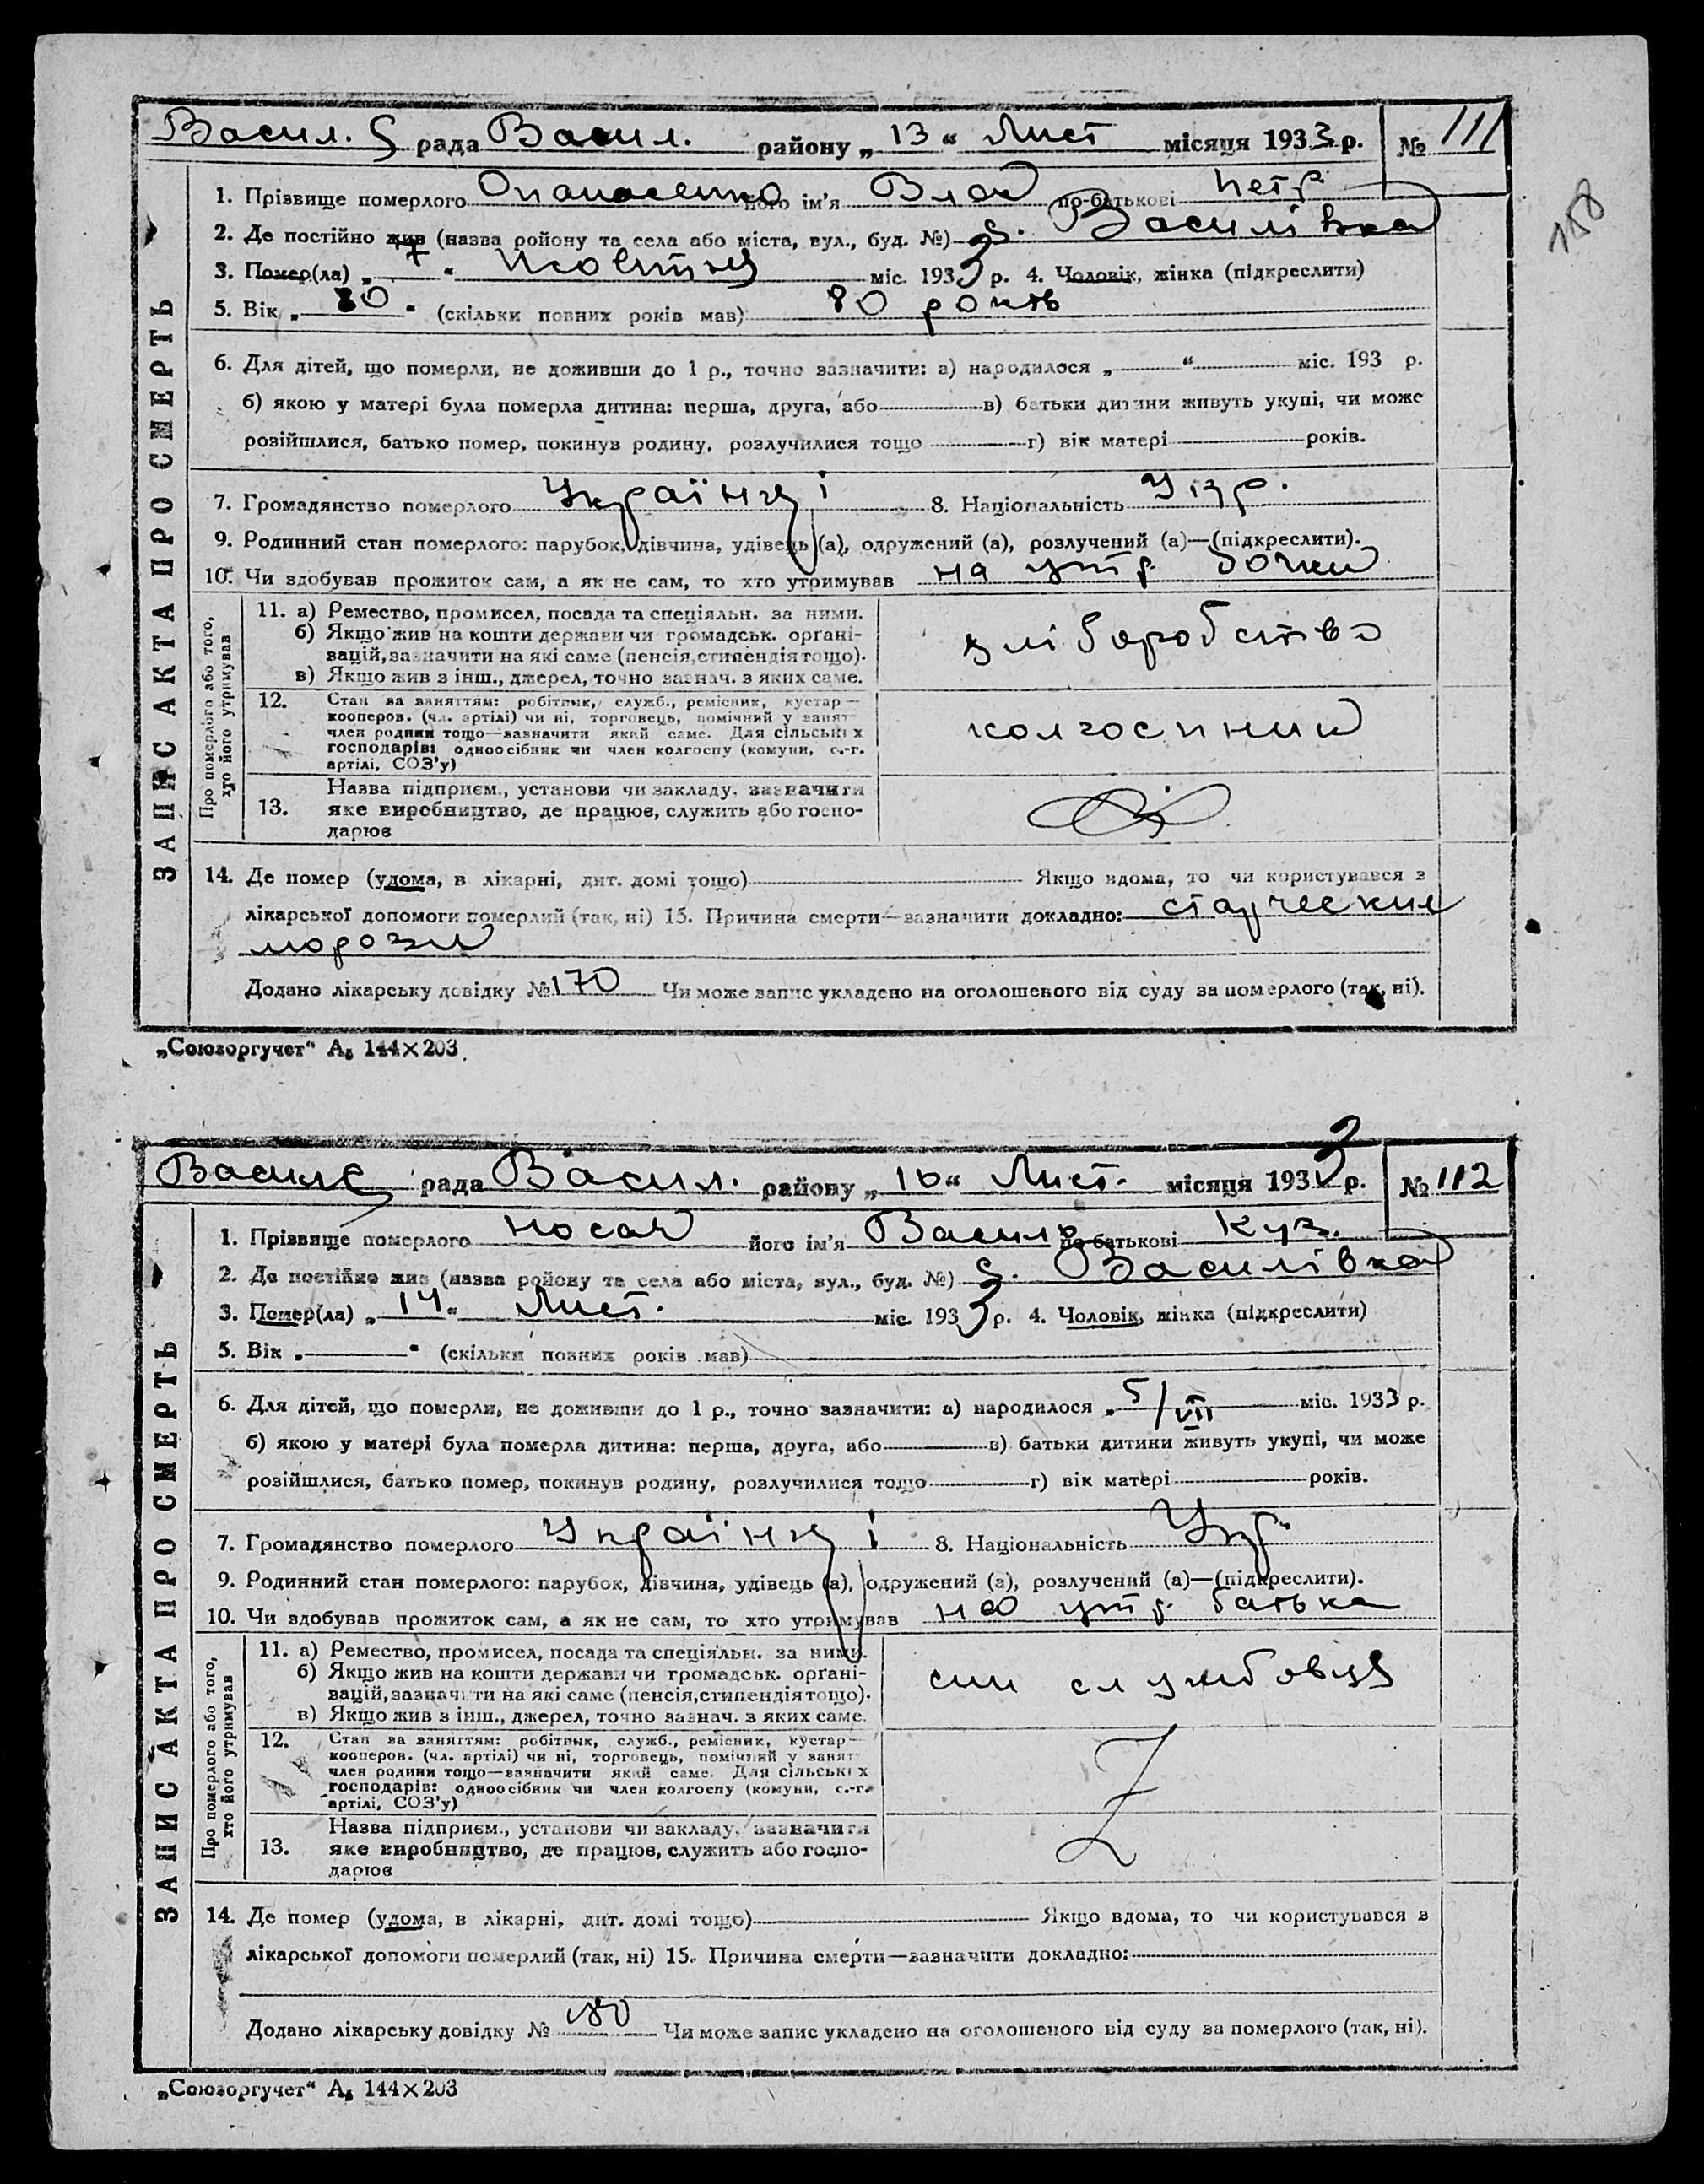 Васил. С рада Васил. району „ 13 “ Лист місяця 1933 р. № 111
158
1. Прізвище померлого Опанасенко його ім'я Влас по-батькові Петр.
2. Де постійно жив (назва району та села або міста, вул., буд. №) с. Василівка
3. Помер(ла) „ 7 “ жовтня міс. 1933 р. 4. Чоловік, жінка (підкреслити)
5. Вік „ 80 “ (скільки повних років мав) 80 років
6. Для дітей, що померли, не доживши до 1 р., точно зазначити: а) народилося „ “ міс. 193 р.
б) якою у матері була померла дитина: перша, друга, або в) батьки дитини живуть укупі, чи може
розійшлися, батько помер, покинув родину, розлучилися тощо г) вік матері років.
7. Громадянство померлого Українці 8. Національність Укр.
9. Родинний стан померлого: парубок, дівчина, удівець (а), одружений (а), розлучений (а)—(підкреслити).
10. Чи здобував прожиток сам, а як не сам, то хто утримував на утр. дочки
ЗАПИС АКТА ПРО СМЕРТЬ
Про померлого або того, хто його утримував
11. а) Ремество, промисел, посада та спеціяльн. за ними.
б) Якщо жив на кошти держави чи громадськ. органі-
зацій, зазначити на які саме (пенсія, стипендія тощо).
в) Якщо жив з інш., джерел, точно зазнач. з яких саме.
хліборобство
12. Стан за заняттям: робітник, служб., ремісник, кустар—
кооперов. (чл. артілі) чи ні, торговець, помічний у занят
член родини тощо—зазначити який саме. Для сільських
господарів: одноосібник чи член колгоспу (комуни, с.-г.
артілі, СОЗ'у)
колгоспник
13. Назва підприєм., установи чи закладу, зазначити
яке виробництво, де працює, служить або госпо-
дарює
14. Де помер (удома, в лікарні, дит. домі тощо) Якщо вдома, то чи користувався з
лікарської допомоги померлий (так, ні) 15. Причина смерти—зазначити докладно: старческие
Додано лікарську довідку № 170 Чи може запис укладено на оголошеного від суду за померлого (так, ні).
„Союзоргучет“ А₅ 144×203
Василс рада Васил. району „ 16 “ Лист. місяця 1933 р. № 112
1. Прізвище померлого Носач його ім'я Василь по-батькові Куз.
2. Де постійно жив (назва району та села або міста, вул., буд. №) с. Василівка
3. Помер(ла) „ 14 “ Лист. міс. 1933 р. 4. Чоловік, жінка (підкреслити)
5. Вік „ “ (скільки повних років мав)
6. Для дітей, що померли, не доживши до 1 р., точно зазначити: а) народилося „ 5/VII міс. 1933 р.
б) якою у матері була померла дитина: перша, друга, або в) батьки дитини живуть укупі, чи може
розійшлися, батько помер, покинув родину, розлучилися тощо г) вік матері років.
7. Громадянство померлого Українці 8. Національність Укр.
9. Родинний стан померлого: парубок, дівчина, удівець (а), одружений (а), розлучений (а)—(підкреслити).
10. Чи здобував прожиток сам, а як не сам, то хто утримував на утр. батька
ЗАПИС АКТА ПРО СМЕРТЬ
Про померлого або того, хто його утримував
11. а) Ремество, промисел, посада та спеціяльн. за ними.
б) Якщо жив на кошти держави чи громадськ. органі-
зацій, зазначити на які саме (пенсія, стипендія тощо).
в) Якщо жив з інш., джерел, точно зазнач. з яких саме.
син службовця
12. Стан за заняттям: робітник, служб., ремісник, кустар—
кооперов. (чл. артілі) чи ні, торговець, помічний у занят
член родини тощо—зазначити який саме. Для сільських
господарів: одноосібник чи член колгоспу (комуни, с.-г.
артілі, СОЗ'у)
13. Назва підприєм., установи чи закладу, зазначити
яке виробництво, де працює, служить або госпо-
дарює
14. Де помер (удома, в лікарні, дит. домі тощо) Якщо вдома, то чи користувався з
лікарської допомоги померлий (так, ні) 15. Причина смерти—зазначити докладно:
Додано лікарську довідку № 180 Чи може запис укладено на оголошеного від суду за померлого (так, ні).
„Союзоргучет“ А₅ 144×203